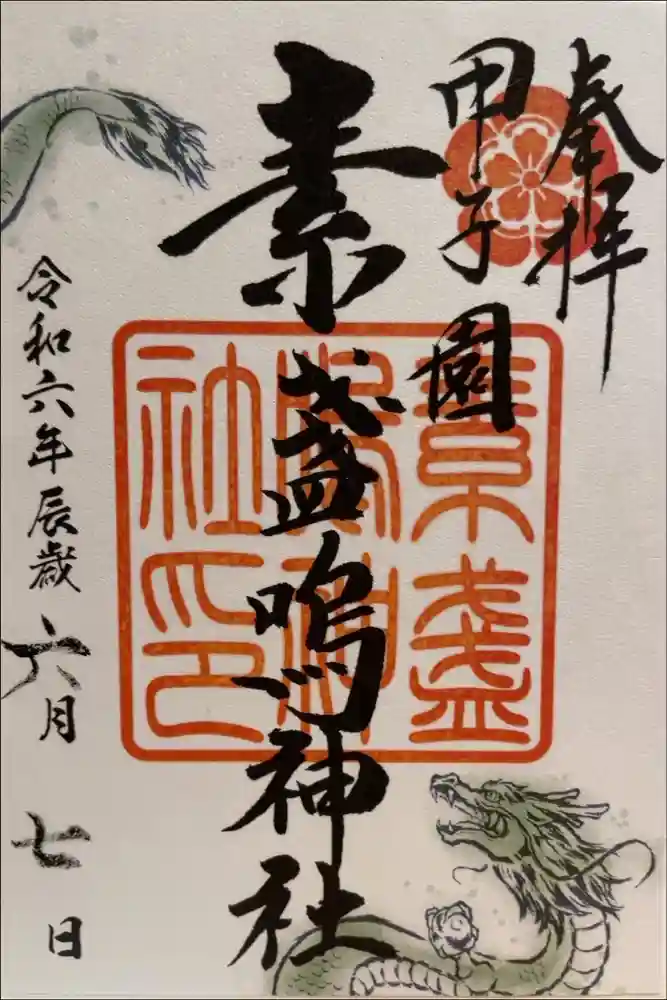 奉拝
甲子園
素盞嗚神社
素盞
嗚神
社印
令和六年辰歳
六月
七日